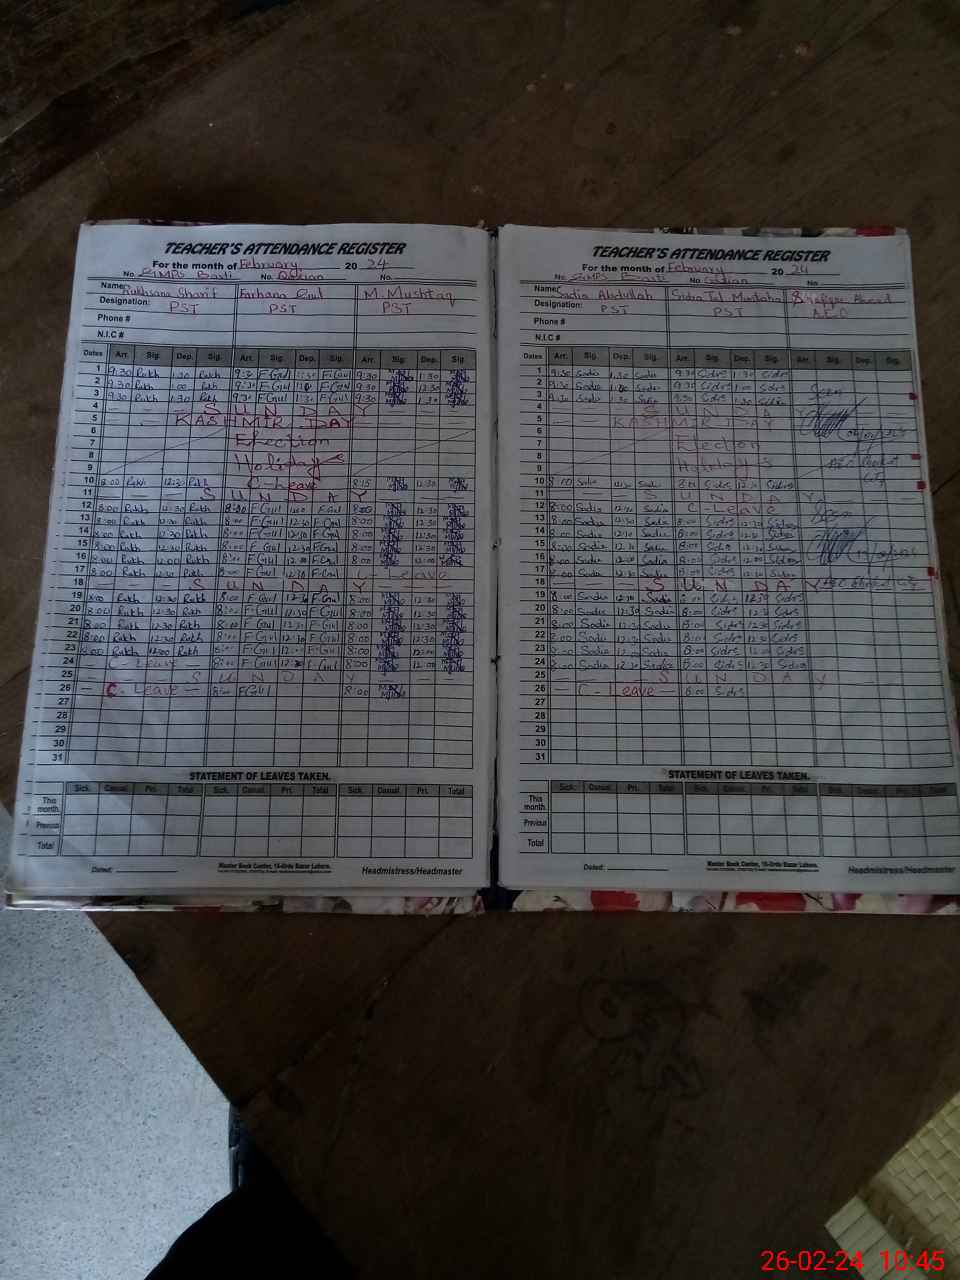 TEACHER'S ATTENDANCE REGISTER
For the month of February 20 24
No. GMPS Basti No. Qasian No.
Name Rukhsana Sharif Farhana Gul M. Mushtaq
Designation: PST PST PST
Phone #
N.I.C #
Dates Arr. Sig. Dep. Sig. Arr. Sig. Dep. Sig. Arr. Sig. Dep. Sig.
1 9:30 Rukh 1:30 Rukh 9:30 F.Gul 1:30 F.Gul 9:30 1:30
2 9:30 Rukh 1:00 Rukh 9:30 F.Gul F.Gul 9:30 12:30
3 9:30 Rukh 1:30 Rukh 9:30 F.Gul 1:30 F.Gul 9:30 1:30
4 — SUNDAY
5 KASHMIR DAY
6 Election
7
8 Holidays
9
10 8:00 Rukh 12:30 Rukh C-Leave 8:15 12:30
11 — SUNDAY —
12 8:00 Rukh 12:30 Rukh 8:00 F.Gul F.Gul 8:00 12:30
13 8:00 Rukh 12:30 Rukh 8:00 F.Gul 12:30 F.Gul 8:00 12:30
14 8:00 Rukh 12:30 Rukh 8:00 F.Gul 12:30 F.Gul 8:00 12:30
15 8:00 Rukh 12:30 Rukh 8:00 F.Gul 12:30 F.Gul 8:00 12:30
16 8:00 Rukh 12:00 Rukh 8:00 F.Gul 12:00 F.Gul 8:00 12:00
17 8:00 Rukh 12:30 Rukh 8:00 F.Gul 12:30 F.Gul Leave
18 SUNDAY —
19 8:00 Rukh 12:30 Rukh 8:00 F.Gul 12:30 F.Gul 8:00 12:30
20 8:00 Rukh 12:30 Rukh 8:00 F.Gul 12:30 F.Gul 8:00 12:30
21 8:00 Rukh 12:30 Rukh 8:00 F.Gul 12:30 F.Gul 8:00 12:30
22 8:00 Rukh 12:30 Rukh 8:00 F.Gul 12:30 F.Gul 8:00 12:30
23 8:00 Rukh 12:00 Rukh 8:00 F.Gul 12:00 F.Gul 8:00 12:00
24 C-Leave 8:00 F.Gul 12:30 F.Gul 8:00 12:00
25 SUNDAY
26 — C-Leave — 8:00 F.Gul 8:00
27
28
29
30
31
STATEMENT OF LEAVES TAKEN.
Sick. Casual. Pri. Total Sick. Casual. Pri. Total Sick. Casual. Pri. Total
This month.
Previous
Total
Dated:
Master Book Center, 15-Urdu Bazar Lahore.
Headmistress/Headmaster
TEACHER'S ATTENDANCE REGISTER
For the month of February 20 24
No. GMPS Basti No. Qasian No
Name: Sadia Abdullah Sidra Tul Muntaha Shafqat Ahmad
Designation: PST PST A.E.O
Phone #
N.I.C #
Dates Arr. Sig. Dep. Sig. Arr. Sig. Dep. Sig. Arr. Sig. Dep. Sig.
1 9:30 Sadia 1:30 Sadia 9:30 Sidra 1:30 Sidra
2 9:30 Sadia 1:00 Sadia 9:30 Sidra 1:00 Sidra
3 9:30 Sadia 1:30 Sadia 9:30 Sidra 1:30 Sidra Seen
4 — SUNDAY
5 KASHMIR DAY
6
7 Election
8
9 Holidays
10 8:00 Sadia 12:30 Sadia 8:00 Sidra 12:30 Sidra
11 — SUNDAY
12 8:00 Sadia 12:30 Sadia C-Leave Seen
13 8:00 Sadia 12:30 Sadia 8:00 Sidra 12:30 Sidra
14 8:00 Sadia 12:30 Sadia 8:00 Sidra 12:30 Sidra
15 8:00 Sadia 12:30 Sadia 8:00 Sidra 12:30 Sidra
16 8:00 Sadia 12:00 Sadia 8:00 Sidra 12:00 Sidra
17 8:00 Sadia 12:30 Sadia 8:00 Sidra 12:30 Sidra
18 — SUNDAY
19 8:00 Sadia 12:30 Sadia 8:00 Sidra 12:30 Sidra
20 8:00 Sadia 12:30 Sadia 8:00 Sidra 12:30 Sidra
21 8:00 Sadia 12:30 Sadia 8:00 Sidra 12:30 Sidra
22 8:00 Sadia 12:30 Sadia 8:00 Sidra 12:30 Sidra
23 8:00 Sadia 12:00 Sadia 8:00 Sidra 12:00 Sidra
24 8:00 Sadia 12:30 Sadia 8:00 Sidra 12:30 Sidra
25 — SUNDAY
26 — C-Leave — 8:00 Sidra
27
28
29
30
31
STATEMENT OF LEAVES TAKEN.
Sick. Casual. Pri. Total Sick. Casual. Pri. Total Sick. Casual. Pri. Total
This month.
Previous
Total
Dated:
Master Book Center, 15-Urdu Bazar Lahore.
Headmistress/Headmaster
26-02-24 10:45